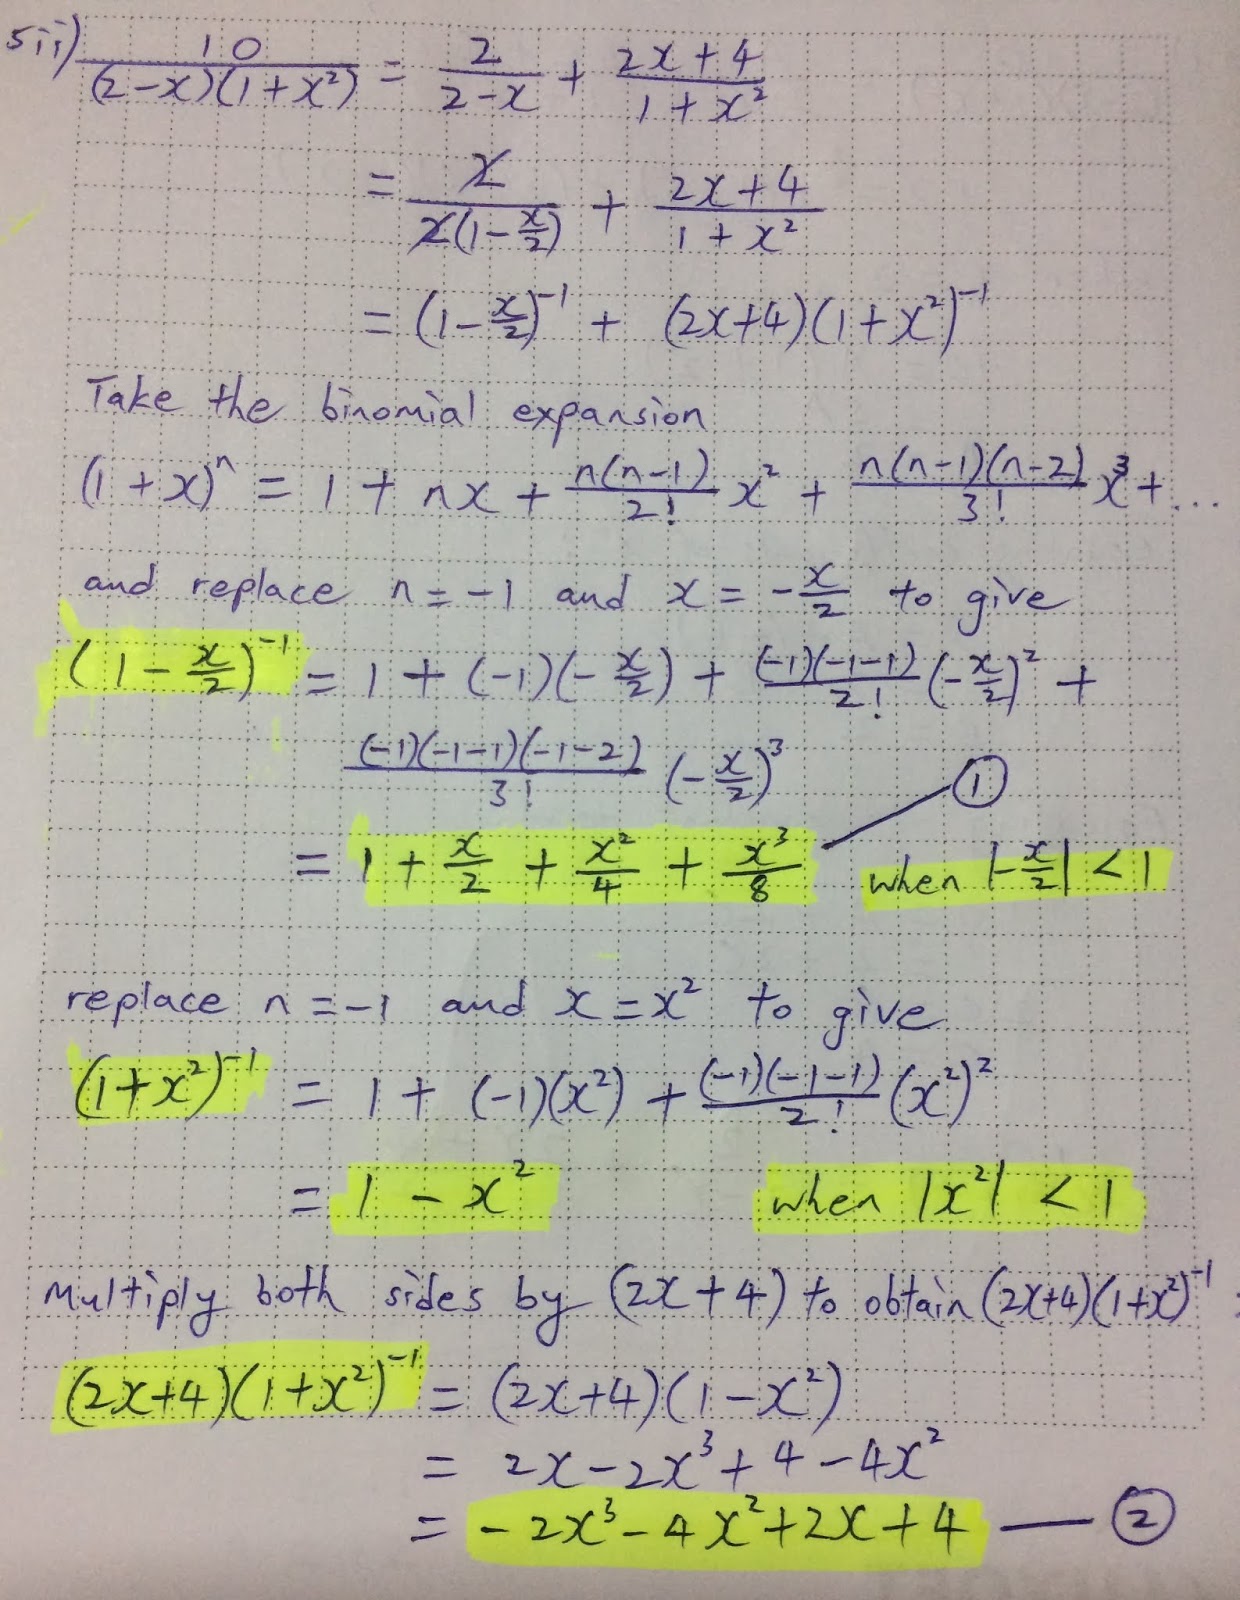 5ii) 10/((2-x)(1+x²)) = 2/(2-x) + (2x+4)/(1+x²)
= 2/(2(1-x/2)) + (2x+4)/(1+x²)
= (1-x/2)⁻¹ + (2x+4)(1+x²)⁻¹
Take the binomial expansion
(1+x)ⁿ = 1 + nx + n(n-1)/2! x² + n(n-1)(n-2)/3! x³ + ...
and replace n = -1 and x = -x/2 to give
(1-x/2)⁻¹ = 1 + (-1)(-x/2) + (-1)(-1-1)/2! (-x/2)² +
(-1)(-1-1)(-1-2)/3! (-x/2)³
①
= 1 + x/2 + x²/4 + x³/8 when |-x/2| < 1
replace n = -1 and x = x² to give
(1+x²)⁻¹ = 1 + (-1)(x²) + (-1)(-1-1)/2! (x²)²
= 1 - x² when |x²| < 1
Multiply both sides by (2x+4) to obtain (2x+4)(1+x²)⁻¹ :
(2x+4)(1+x²)⁻¹ = (2x+4)(1-x²)
= 2x - 2x³ + 4 - 4x²
= -2x³ - 4x² + 2x + 4 — ②